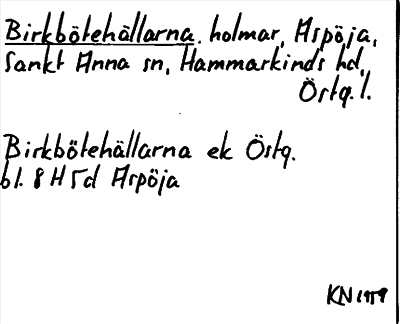 Birkbötehällarna. holmar, Aspöja,
Sankt Anna sn, Hammarkinds hd,
Östg. l.
Birkbötehällarna ek Östg.
bl. 8 H 5d Aspöja
KN 1959